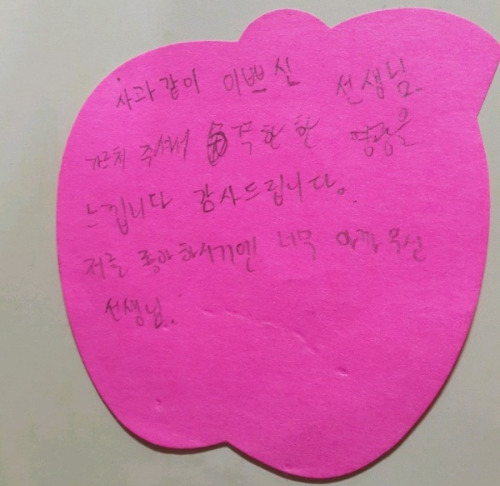 사과같이 이쁘신 선생님.
가르쳐 주셔서 무한한 영광을
느낍니다 감사드립니다.
저를 좋아하시기엔 너무 아까우신
선생님.